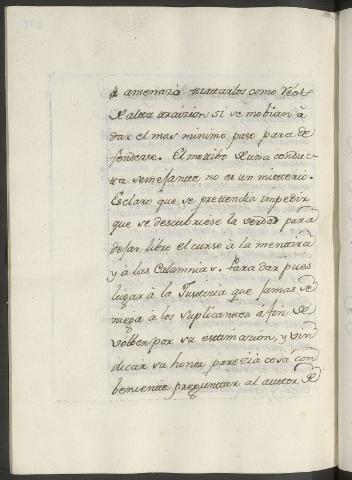 amenazà trattarlos como rèos
de altta traizion si se mobian à
dar el mas minimo paso para de
fenderse. El mottibo de una conduc
tta semejantte, no es un mistterio.
Es claro que se prettendia impedir
que se descubriese la verdad para
dejar libre el curso à la menttira
y à las Calumnias. Para dar pues
lugar à la Justtizia que jamas se
niega à los suplicanttes à fin de
volber por su esttimazion, y vin
dicar su honor parezia cosa con
benientte pregunttar al auttor de